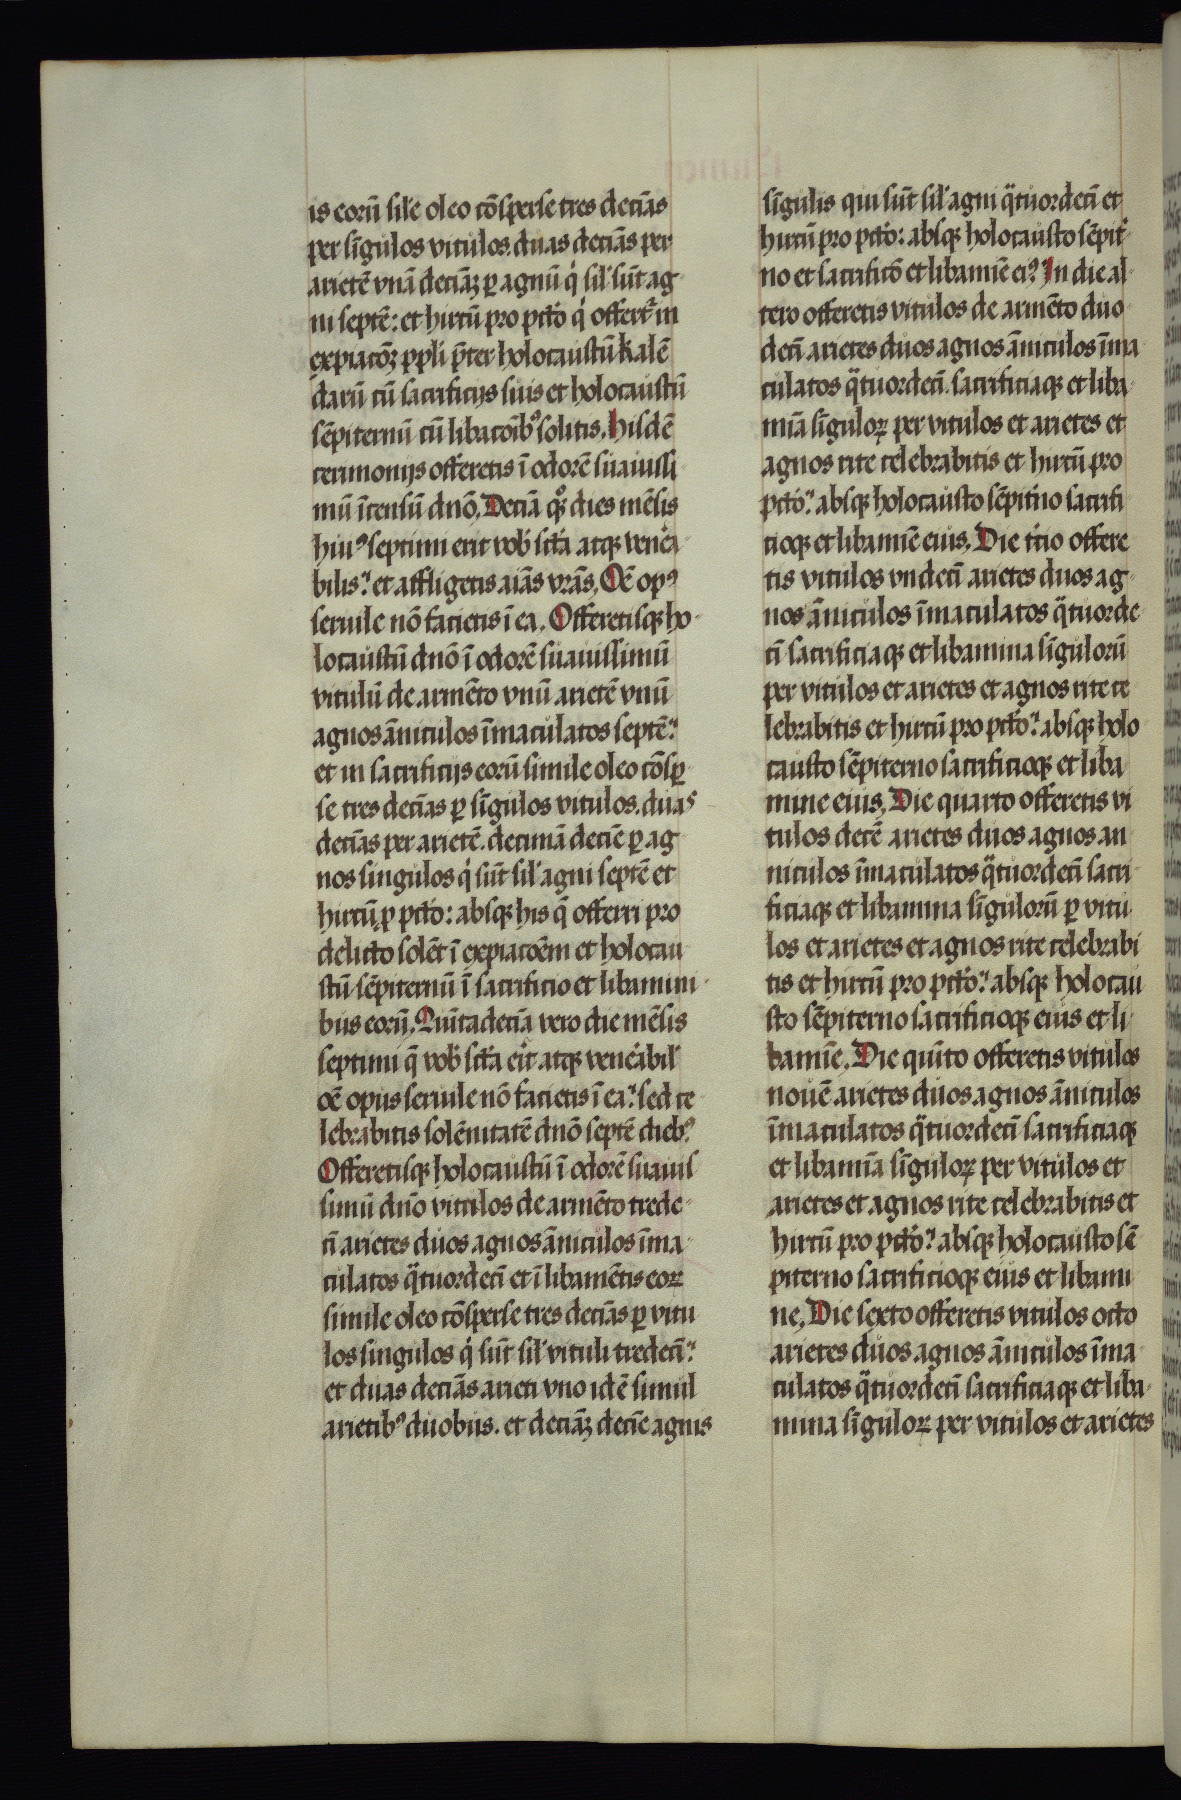 is eorū sil'e oleo cōsperse tres deciās
per sīgulos vitulos. duas deciās per
arietē vnā deciāꝫ ꝑ agnū q̇ sil' sūt ag
ni septē: et hircū pro pctō q̇ offert᷑ in
expiacōꝫ ppli p̄ter holocaustū kalē
darū cū sacrificijs suis et holocaustū
sēpiternū cū libacōibꝰ solitis. Hisdē
cerimonijs offeretis ī odorē suauissi
mū īcensū dnō. Decīa qͦꝫ dies mēsis
hiuꝰ septimi erit vob' sctā atqꝫ vene᷑a
bilis: et affligetis aiās vrās. Oē opꝰ
seruile nō facietis ī ea. Offeretisqꝫ ho
locaustū dnō ī odorē suauissimū
vitulū de armēto vnū arietē vnū
agnos āniculos īmaculatos septē:
et in sacrificijs eorū simile oleo cōsꝑ
se tres deciās ꝑ sīgulos vitulos. duas
deciās per arietē. decimā deciē ꝑ ag
nos singulos q̇ sūt sil' agni septē et
hircū ꝓ pctō: absqꝫ his q̄ offerri pro
delicto solēt ī expiacōem et holocau
stū sēpiternū ī sacrificio et libamini
bus eorū. Quītadecīa vero die mēsis
septimi q̄ vob' sctā eīt atqꝫ vene᷑abil'
oē opus seruile nō facietis ī ea: sed ce
lebrabitis solēnitatē dnō septē diebꝰ.
Offeretisqꝫ holocaustū ī odorē suauis
simū dnō vitulos de armēto trede
cī arietes duos agnos āniculos īma
culatos q̄tuordecī et ī libamētis eoꝝ
simile oleo cōsperse tres deciās ꝑ vitu
los singulos q̇ sūt sil' vituli tredecī:
et duas deciās arieti vno idē simul
arietibꝰ duobus. et deciāꝫ deciē agnis
sīgulis qui sūt sil' agni q̄tuordecī et
hircū pro pctō: absqꝫ holocausto sēpit᷑
no et sacrificō et libamiē eiꝰ. In die al
tero offeretis vitulos de armēto duo
decī arietes duos agnos āniculos īma
culatos q̄tuordecī. sacrificiaqꝫ et liba
mīa sīguloꝝ per vitulos et arietes et
agnos rite celebrabitis et hircū pro
pctō: absqꝫ holocausto sēpit᷑no sacrifi
cioqꝫ et libamiē eius. Die t᷑cio offere
tis vitulos vndecī arietes duos ag
nos āniculos īmaculatos q̄tuorde
cī sacrificiaqꝫ et libamina sīgulorū
per vitulos et arietes et agnos rite ce
lebrabitis et hircū pro pctō: absqꝫ holo
causto sēpiterno sacrificioqꝫ et liba
mine eius. Die quarto offeretis vi
tulos decē arietes duos agnos an
niculos īmaculatos q̄tuordecī sacri
ficiaqꝫ et libamina sīgulorū ꝑ vitu
los et arietes et agnos rite celebrabi
tis et hircū pro pctō: absqꝫ holocau
sto sēpiterno sacrificioqꝫ eius et li
bamiē. Die quīto offeretis vitulos
nouē arietes duos agnos āniculos
īmaculatos q̄tuordecī sacrificiaqꝫ
et libamīa sīguloꝝ per vitulos et
arietes et agnos rite celebrabitis et
hircū pro pctō: absqꝫ holocausto sē
piterno sacrificioqꝫ eius et libami
ne. Die sexto offeretis vitulos octo
arietes duos agnos āniculos īma
culatos q̄tuordecī sacrificiaqꝫ et liba
mina sīguloꝝ per vitulos et arietes